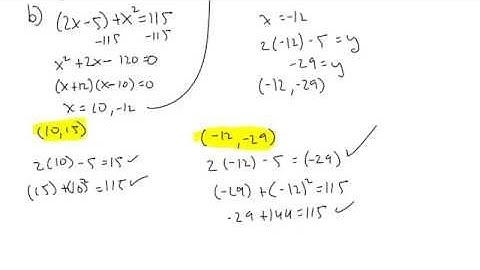 b) (2x-5)+x²=115
-115 -115
x²+2x-120=0
(x+12)(x-10)=0
x=10,-12
(10,15)
2(10)-5=15✓
(15)+(10)²=115✓
x=-12
2(-12)-5=y
-29=y
(-12,-29)
(-12,-29)
2(-12)-5=(-29)✓
(-29)+(-12)²=115
-29+144=115✓